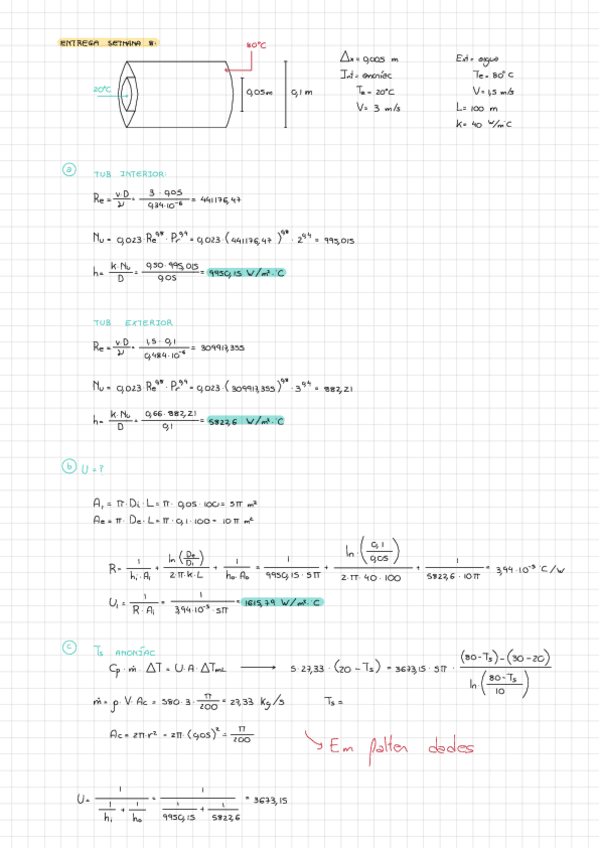 ENTREGA SETMANA 8:
80°C
20°C
0,05m
0,1 m
Δx = 0,005 m
Int = amoníac
Ta = 20°C
V = 3 m/s
Ext = aigua
Te = 80°C
V = 1,5 m/s
L = 100 m
k = 40 W/m·C
a
TUB INTERIOR:
Re = v·D/ν = 3 · 0,05/0,34·10⁻⁶ = 441176,47
Nu = 0,023 · Re^0,8 · Pr^0,4 = 0,023 · (441176,47)^0,8 · 2^0,4 = 995,015
h = k·Nu/D = 0,50 · 995,015/0,05 = 9950,15 W/m²·°C
TUB EXTERIOR
Re = v·D/ν = 1,5 · 0,1/0,484·10⁻⁶ = 309917,355
Nu = 0,023 · Re^0,8 · Pr^0,4 = 0,023 · (309917,355)^0,8 · 3^0,4 = 882,21
h = k·Nu/D = 0,66 · 882,21/0,1 = 5822,6 W/m²·°C
b U = ?
Ai = π · Di · L = π · 0,05 · 100 = 5π m²
Ae = π · De · L = π · 0,1 · 100 = 10π m²
R = 1/hi·Ai + ln(De/Di)/2·π·k·L + 1/ho·Ao = 1/9950,15 · 5π + ln(0,1/0,05)/2·π · 40 · 100 + 1/5822,6 · 10π = 3,94·10⁻⁵ °C/W
Ui = 1/R·Ai = 1/3,94·10⁻⁵ · 5π = 1615,79 W/m²·°C
c Ts AMONÍAC
Cp · ṁ · ΔT = U · A · ΔTmL → 5 · 27,33 · (20 - Ts) = 3673,15 · 5π · (80-Ts)-(30-20)/ln(80-Ts/10)
ṁ = ρ · V · Ac = 580 · 3 · π/200 = 27,33 kg/s Ts =
Ac = 2π·r² = 2π · (0,05)² = π/200
Em falten dades
U = 1/1/hi + 1/ho = 1/1/9950,15 + 1/5822,6 = 3673,15